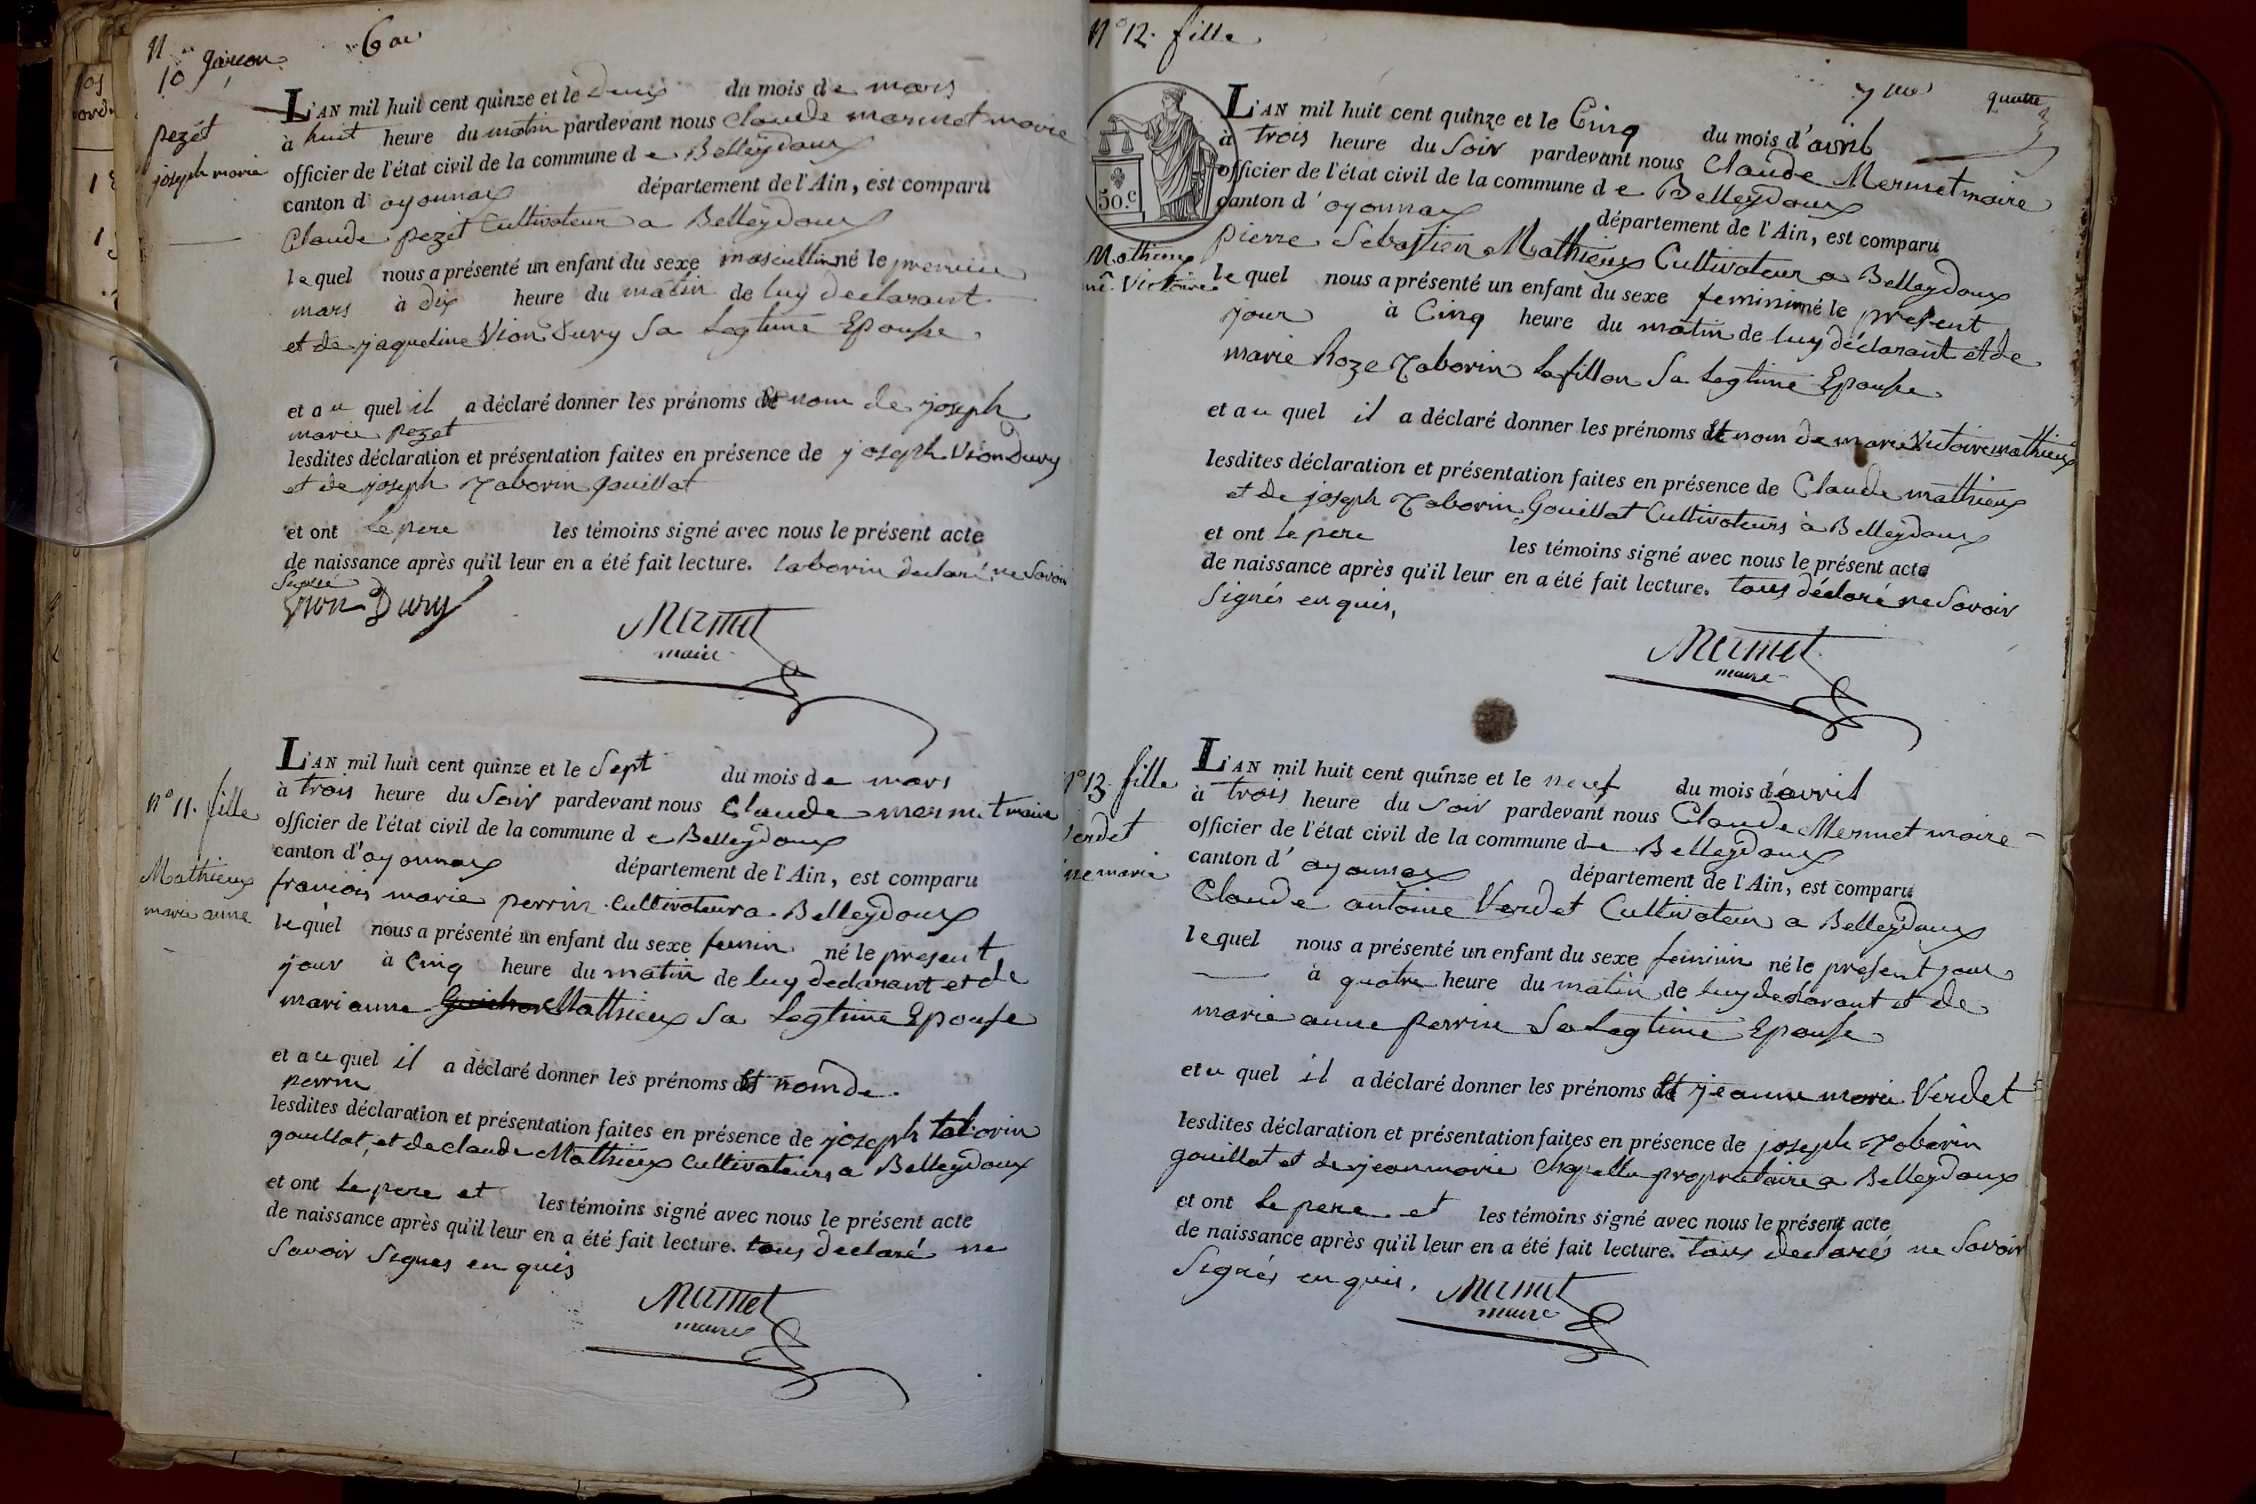 N°
10 garcon
6me
pezet
joseph marie
L'AN mil huit cent quinze et le Deux du mois de mars
à huit heure du matin pardevant nous Claude mermet maire
officier de l'état civil de la commune de Belleydoux
canton d'oyonnax département de l'Ain, est comparu
Claude pezet Cultivateur a Belleydoux
lequel nous a présenté un enfant du sexe masculin né le premier
mars à dix heure du matin de luy declarant
et de jaqueline Vion Dury Sa Legtime Epouse
et auquel il a déclaré donner les prénoms et nom de joseph
marie pezet
lesdites déclaration et présentation faites en présence de joseph Vion Dury
et de joseph Taborin gouillat
et ont Le pere les témoins signé avec nous le présent acte
de naissance après qu'il leur en a été fait lecture. taborin declaré ne Savoir
Vion Dury
Mermet
maire
N° 11. fille
Mathieux
marie anne
L'AN mil huit cent quinze et le Sept du mois de mars
à trois heure du Soir pardevant nous Claude mermet maire
officier de l'état civil de la commune de Belleydoux
canton d'oyonnax département de l'Ain, est comparu
francois marie perrin Cultivateur a Belleydoux
lequel nous a présenté un enfant du sexe feminin né le present
jour à Cinq heure du matin de luy declarant et de
marianne Mathieux Sa Legtime Epouse
et auquel il a déclaré donner les prénoms et nom de
perrin
lesdites déclaration et présentation faites en présence de joseph taborin
gouillat, et de claude Mathieux Cultivateurs a Belleydoux
et ont Le pere et les témoins signé avec nous le présent acte
de naissance après qu'il leur en a été fait lecture. tous declaré ne
Savoir Signes en quis
Mermet
maire
N° 12. fille
7me
quatre
50.c
Mathieux
Victoire
L'AN mil huit cent quinze et le Cinq du mois d'avril
à trois heure du Soir pardevant nous Claude Mermet maire
officier de l'état civil de la commune de Belleydoux
canton d'oyonnax département de l'Ain, est comparu
pierre Sebastien Mathieux Cultivateur a Belleydoux
lequel nous a présenté un enfant du sexe feminin né le present
jour à Cinq heure du matin de luy déclarant et de
marie Roze Taborin Lafillon Sa Legtime Epouse
et auquel il a déclaré donner les prénoms et nom de marie Victoire mathieux
lesdites déclaration et présentation faites en présence de Claude mathieux
et de joseph Taborin Gouillat Cultivateurs à Belleydoux
et ont Le pere les témoins signé avec nous le présent acte
de naissance après qu'il leur en a été fait lecture. tous déclaré ne Savoir
Signés en quis,
Mermet
maire
N° 13. fille
Verdet
marie
L'AN mil huit cent quinze et le neuf du mois d'avril
à trois heure du Soir pardevant nous Claude Mermet maire
officier de l'état civil de la commune de Belleydoux
canton d'oyonnax département de l'Ain, est comparu
Claude antoine Verdet Cultivateur a Belleydoux
lequel nous a présenté un enfant du sexe feminin né le present jour
à quatre heure du matin de luy declarant et de
marie anne perrin Sa Legtime Epouse
et u quel il a déclaré donner les prénoms et jeanne marie Verdet
lesdites déclaration et présentation faites en présence de joseph Taborin
gouillat et de jean marie Chapellu proprietaire a Belleydoux
et ont Le pere et les témoins signé avec nous le présent acte
de naissance après qu'il leur en a été fait lecture. tous declarés ne Savoir
Signés en quis.
Mermet
maire